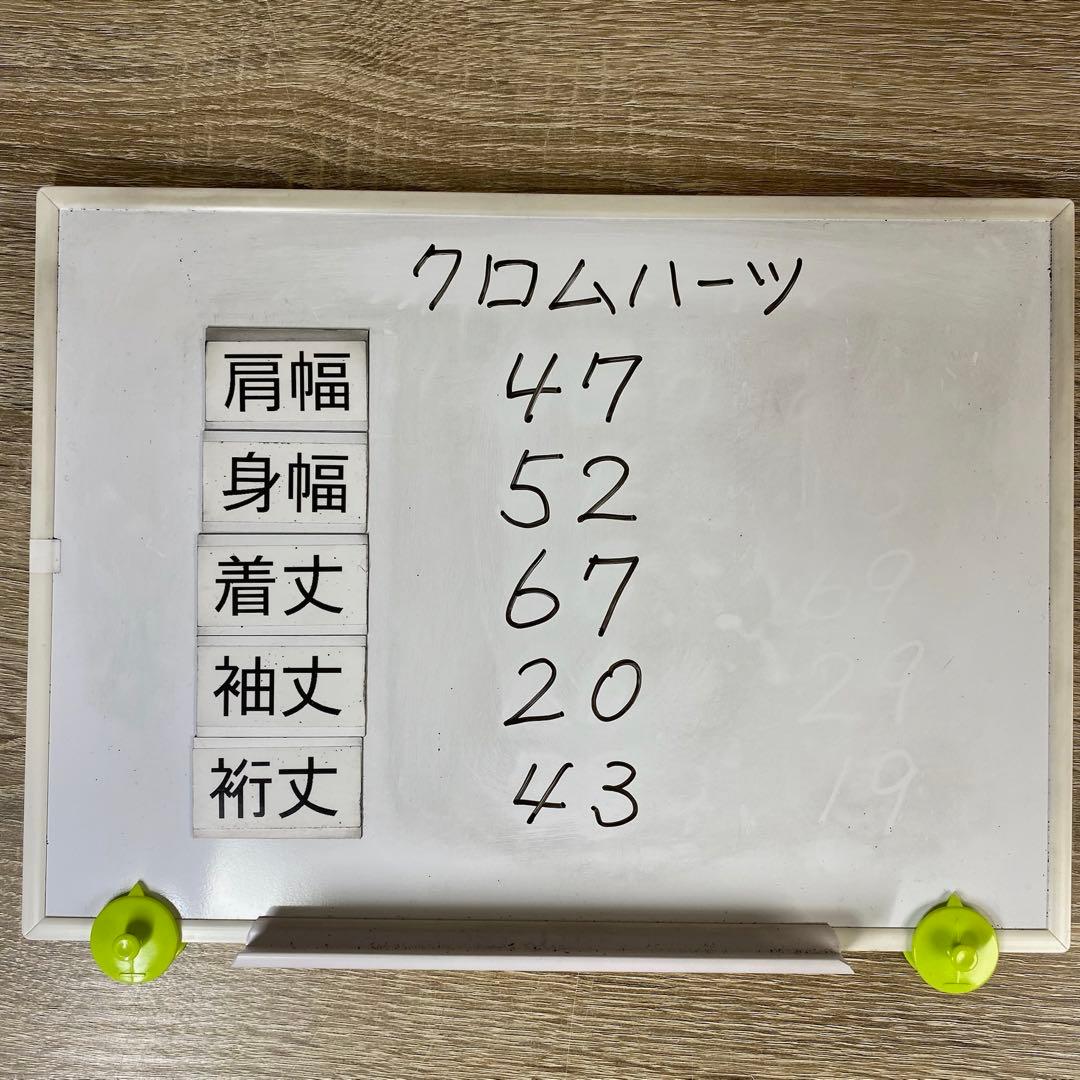 クロムハーツ
肩幅 47
身幅 52
着丈 67 69
袖丈 20 29
裄丈 43 19